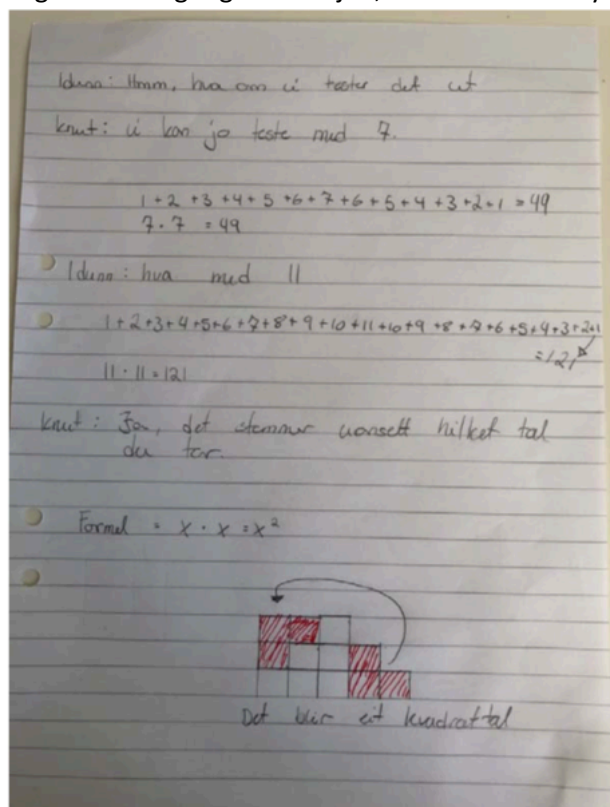 Idunn: Hmm, hva om vi tester det ut
Knut: vi kan jo teste med 7.
1+2+3+4+5+6+7+6+5+4+3+2+1=49
7·7 = 49
Idunn: hva med 11
1+2+3+4+5+6+7+8+9+10+11+10+9+8+7+6+5+4+3+2+1
=121
11·11=121
Knut: Ja, det stemmer uansett hilket tal
du tar.
Formel = x·x=x²
Det blir eit kvadrattal